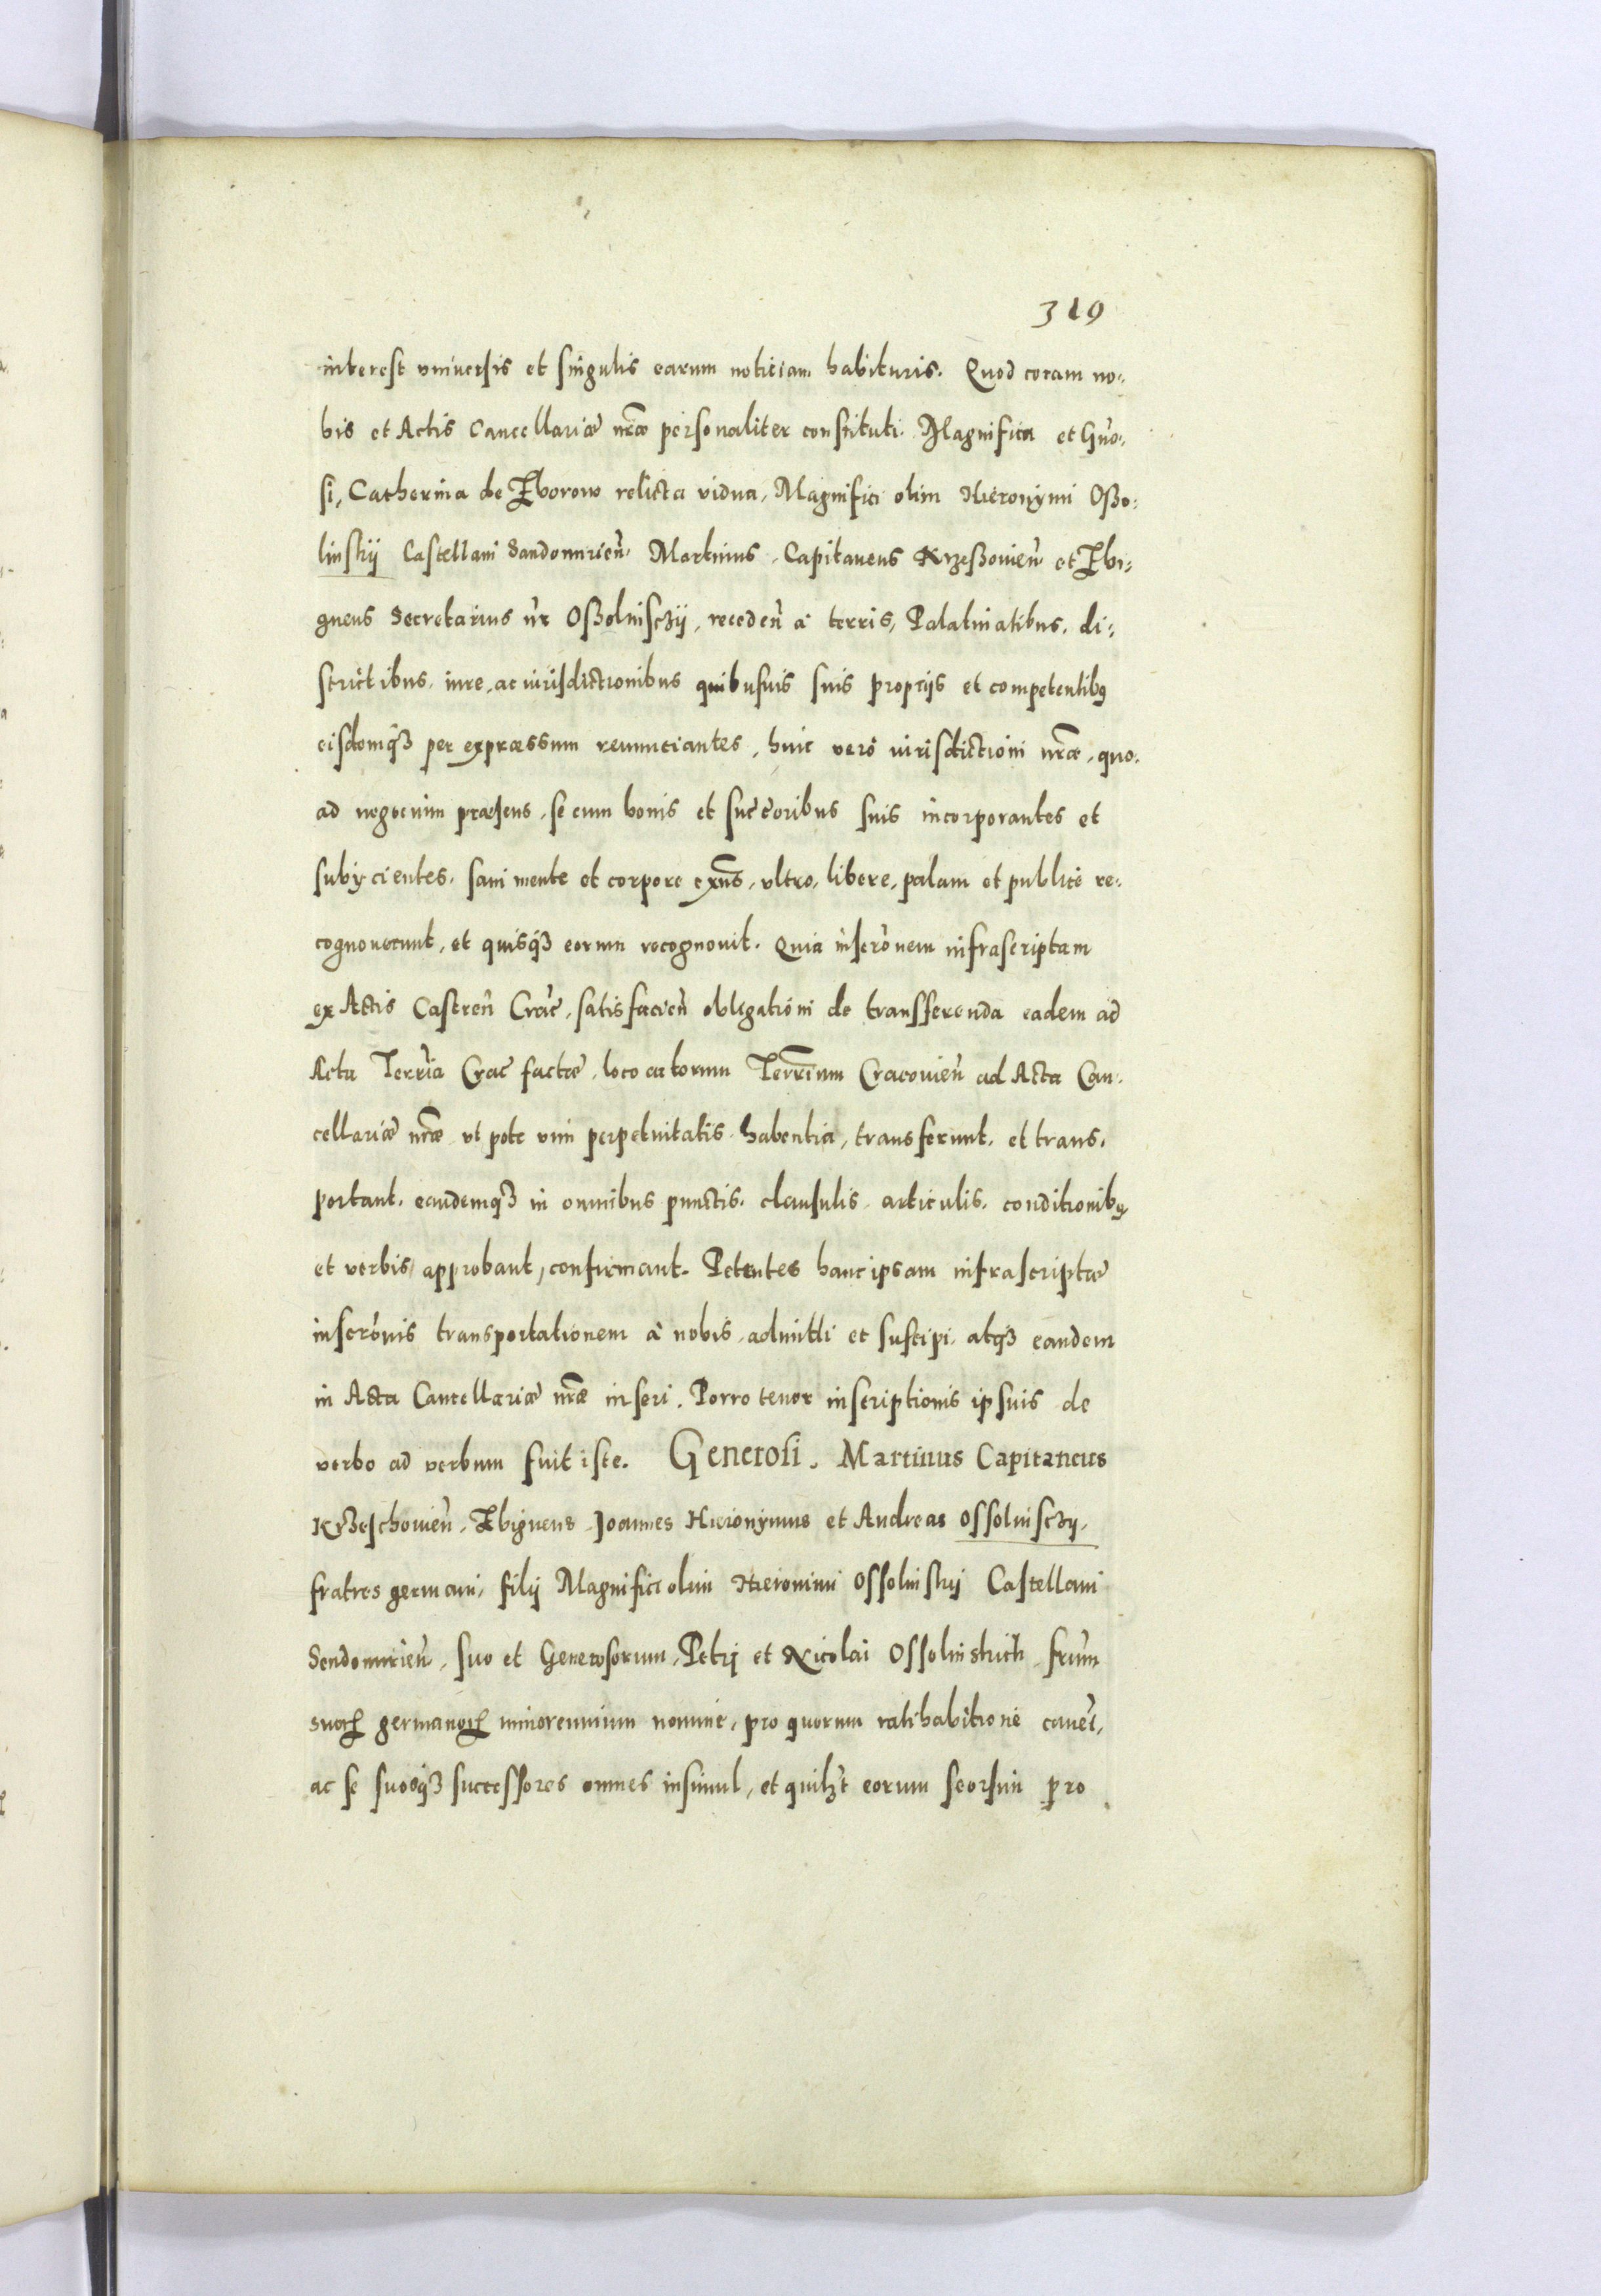 319
interest vniuersis et singulis earum noticiam habituris. Quod coram no-
bis et Actis Cancellariæ nr̃æ personaliter constituti. Magnifica et Gño-
si, Catherina de Zborow relicta vidua, Magnifici olim Hieronymi Oßo-
linskij Castellani Sandomirień. Martinus, Capitaneus Krzeßowień et Zbi-
gneus Secretarius ñr Oßolinsczij, recedeñ à terris, Palatinatibus, di-
strictibus, iure, ac iurisdictionibus quibusuis suis proprijs et competentibꝰ
eisdemqꝫ per expræssum renunciantes, huic verò iurisdictioni nr̃æ, quo-
ad negocium præsens, se cum bonis et succ̃oribus suis incorporantes et
subijcientes, sani mente et corpore exñs, vltro, libere, palam et publicè re-
cognouerunt, et quisqꝫ eorum recognouit. Quia inscrõnem infrascriptam
ex Actis Castreñ Crac̃, satisfacień obligationi de transferenda eadem ad
Acta Terrr̃ia Crac̃ factæ, loco actorum Terrr̃ium Cracouień ad Acta Can-
cellariæ nr̃æ vt pote vim perpetuitatis habentia, transferunt, et trans-
portant, eandemqꝫ in omnibus punctis, clausulis, articulis, conditionibꝰ
et verbis approbant, confirmant. Petentes hanc ipsam infrascriptæ
inscrõnis transportationem à nobis admitti et suscipi, atqꝫ eandem
in Acta Cancellariæ nr̃æ inseri. Porro tenor inscriptionis ipsius de
verbo ad verbum fuit iste. Generosi. Martinus Capitaneus
Krzeschouień, Zbigneus, Joannes Hieronymus et Andreas Ossolinsczy,
fratres germani, filij Magnifici olim Hieronimi Ossolinskij Castellani
Sendomirień, suo et Generosorum, Petrj et Nicolai Ossolinskich frũm
suoꝝ germanoꝝ minorennium nomine, pro quorum ratihabitione caueñ,
ac se suosqꝫ successores omnes insimul, et quilꝫt eorum seorsim pro